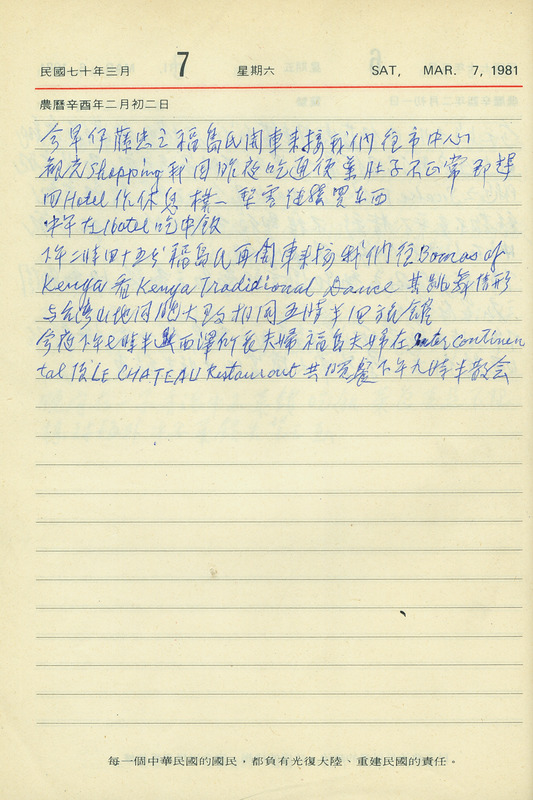 民國七十年三月 7 星期六 SAT, MAR. 7, 1981
農曆辛酉年二月初二日
今早伊藤忠之福島氏開車來接我們往市中心
觀光/Shopping 我因昨夜吃通便藥肚子不正常即趕
回Hotel作休息 樸一 梨雲 繼續買東西
中午在Hotel吃中飯
下午二時四十五分福島氏再開車來接我們往Bomas of
Kenya看Kenya Traditional Dance 其跳舞情形
与台灣山地同胞大致相同五時半回旅館
今夜下午七時半與西澤所長夫婦福島夫婦在Intercontinen
tal 後LE CHATEAU Restaurout 共晚餐下午九時半散会
每一個中華民國的國民，都負有光復大陸、重建民國的責任。